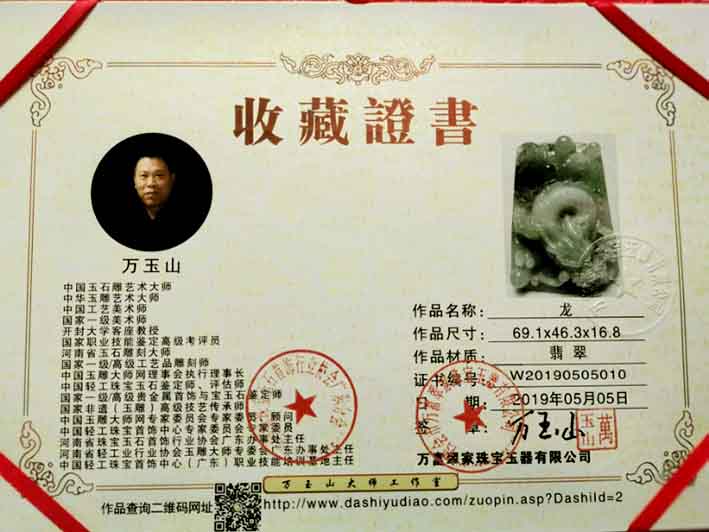 收藏證書
万玉山
中国玉石雕艺术大师
中华玉雕艺术大师
中国工艺美术师
国家一级美术师
开封大学客座教授
国家职业技能鉴定高级考评员
河南省玉石雕刻大师
国家一级/高级工艺品雕刻师
中国玉雕大师网理事会执行理事长
中国轻工珠宝玉石鉴定师、评估师
国家一级/高级贵金属首饰与宝玉石鉴定师
国家非遗（玉雕）高级技艺传承师
中国玉雕大师网专家委员会专家委员、顾问
中国轻工珠宝首饰中心专家委员会专家委员
河南省珠宝玉石首饰行业协会广东办事处主任
河南省轻工业行业协会玉雕大师专委会广东办事处主任
中国轻工珠宝首饰中心（广东）职业技能培训基地主任
作品名称: 龙
作品尺寸: 69.1x46.3x16.8
作品材质: 翡翠
证书编号: W20190505010
日期: 2019年05月05日
签章: 万玉山
萬玉山
万富绿家珠宝玉器有限公司
万玉山大师工作室
作品查询二维码网址
http://www.dashiyudiao.com/zuopin.asp?DashiId=2